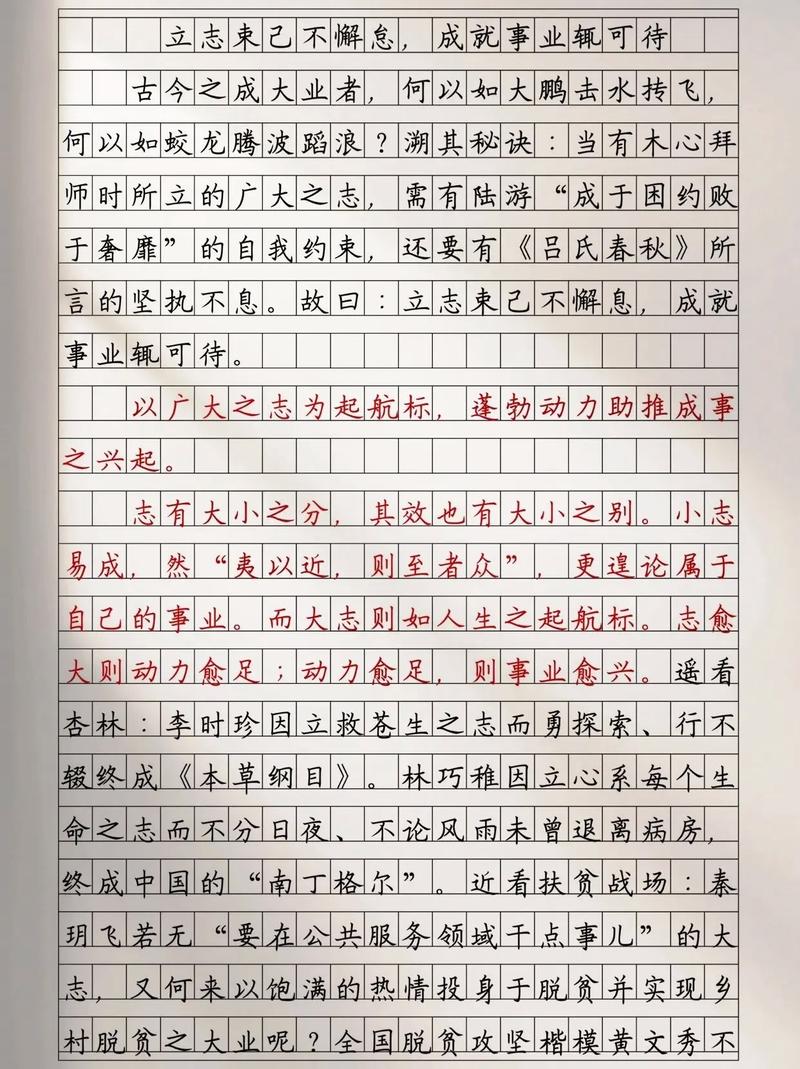 立志束己不懈怠，成就事业辄可待
古今之成大业者，何以如大鹏击水抟飞，
何以如蛟龙腾波蹈浪？溯其秘诀：当有木心拜
师时所立的广大之志，需有陆游“成于困约败
于奢靡”的自我约束，还要有《吕氏春秋》所
言的坚执不息。故曰：立志束己不懈息，成就
事业辄可待。
以广大之志为起航标，蓬勃动力助推成事
之兴起。
志有大小之分，其效也有大小之别。小志
易成，然“夷以近，则至者众”，更遑论属于
自己的事业。而大志则如人生之起航标。志愈
大则动力愈足；动力愈足，则事业愈兴。遥看
杏林：李时珍因立救苍生之志而勇探索、行不
辍终成《本草纲目》。林巧稚因立心系每个生
命之志而不分日夜、不论风雨未曾退离病房，
终成中国的“南丁格尔”。近看扶贫战场：秦
玥飞若无“要在公共服务领域干点事儿”的大
志，又何来以饱满的热情投身于脱贫并实现乡
村脱贫之大业呢？全国脱贫攻坚楷模黄文秀不